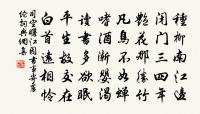 種柳南江邊
閉門三四年
艷花那勝竹
凡鳥不如蟬
嗜酒漸嬰渴
讀書多欲眠
平生故交在
白首遠相憐
司空曙江園書事寄盧
綸詞典網集